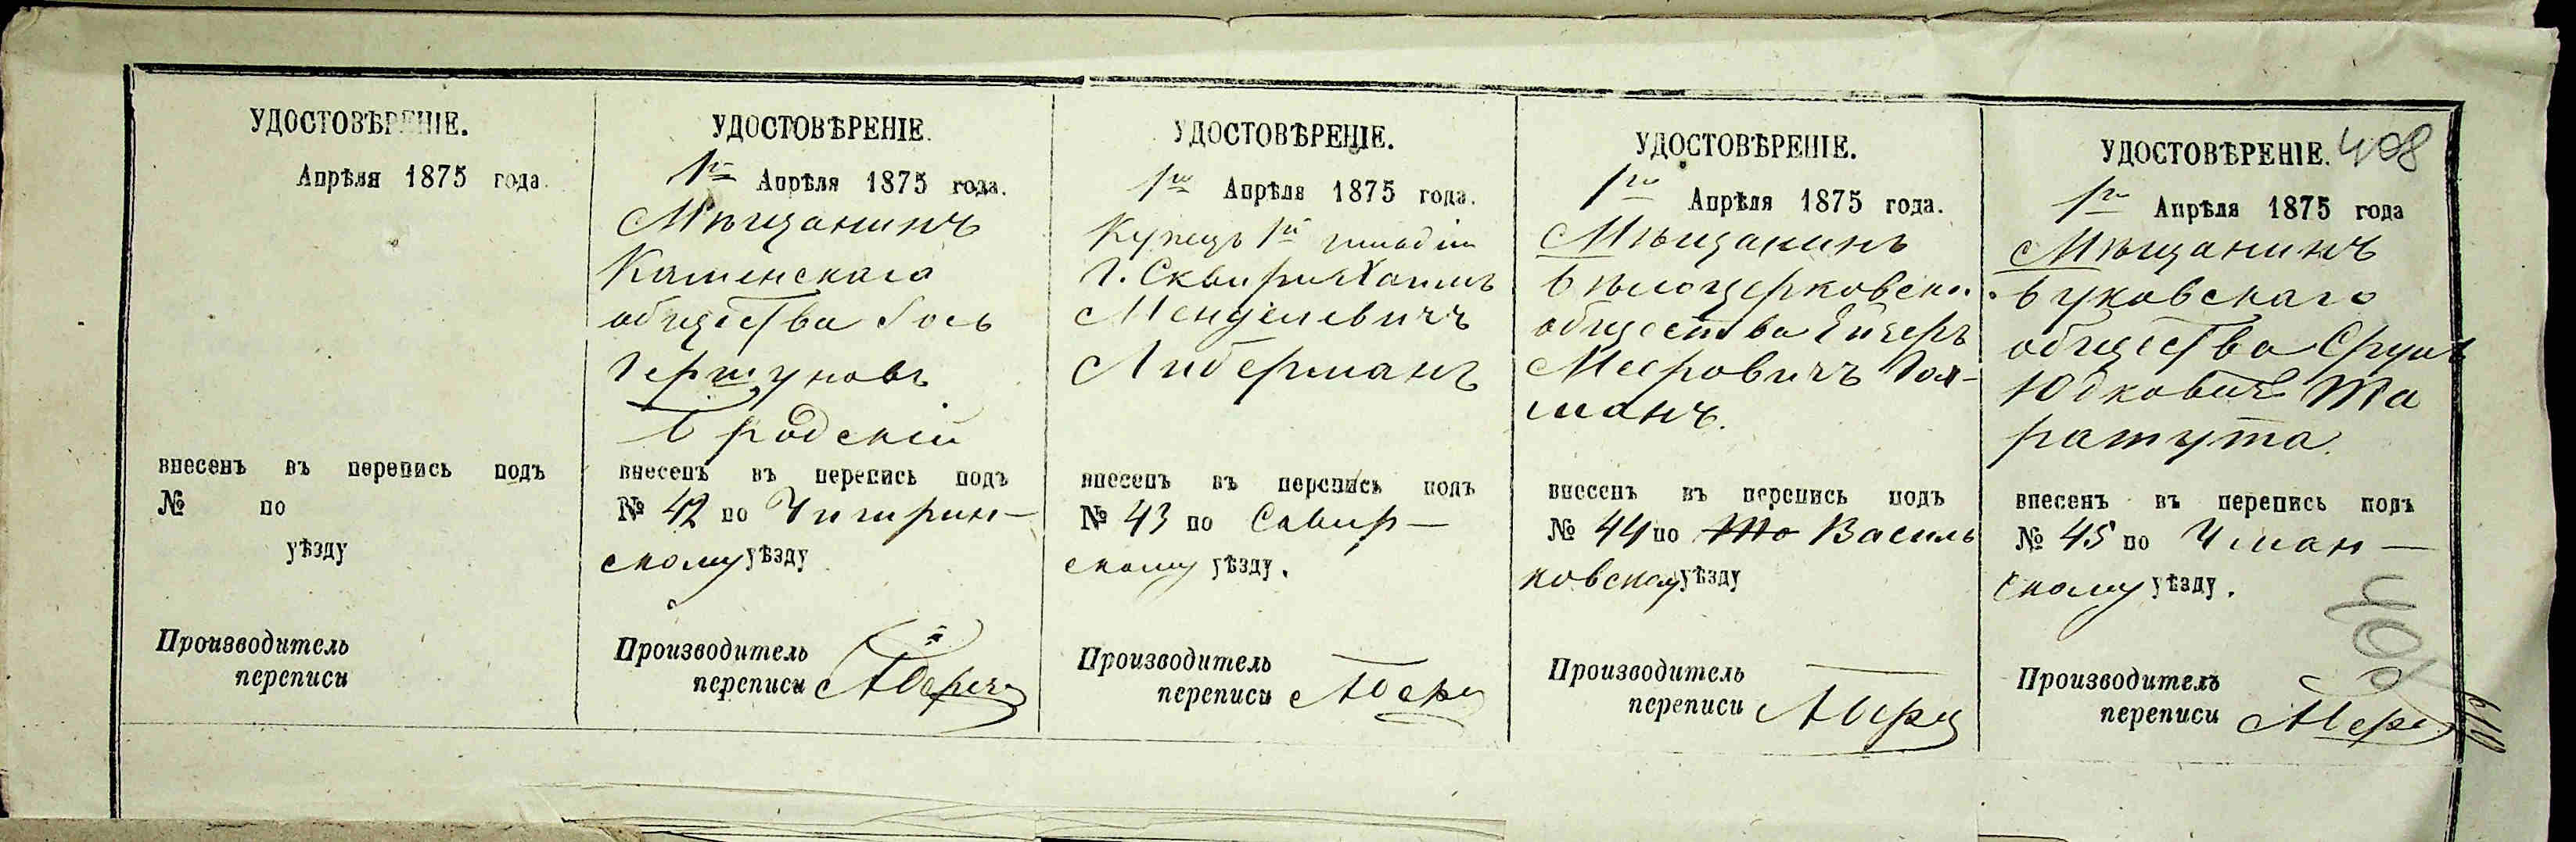 УДОСТОВѢРЕНІЕ.
Апрѣля 1875 года.
внесенъ въ перепись подъ
№ по
уѣзду
Производитель
переписи
УДОСТОВѢРЕНІЕ.
1го Апрѣля 1875 года.
Мѣщанинъ
Каменскаго
общества Іось
Гершуновъ
Бродскій
внесенъ въ перепись подъ
№ 42 по Чигирин-
скому уѣзду
Производитель
переписи
УДОСТОВѢРЕНІЕ.
1го Апрѣля 1875 года.
Купецъ 1й гильдіи
г. Сквиры Хаимъ
Менделевичъ
Либерманъ
внесенъ въ перепись подъ
№ 43 по Сквир-
скому уѣзду.
Производитель
переписи
УДОСТОВѢРЕНІЕ.
1го Апрѣля 1875 года.
Мѣщанинъ
Бѣлоцерковск.
общества
Мееровичъ Гол-
манъ.
внесенъ въ перепись подъ
№ 44 по Василь
ковскому уѣзду
Производитель
переписи
УДОСТОВѢРЕНІЕ. 408
1го Апрѣля 1875 года
Мѣщанинъ
Буковскаго
общества Сруль
Юдковичъ Та
ратута.
внесенъ въ перепись подъ
№ 45 по Уман-
скому уѣзду.
Производитель
переписи